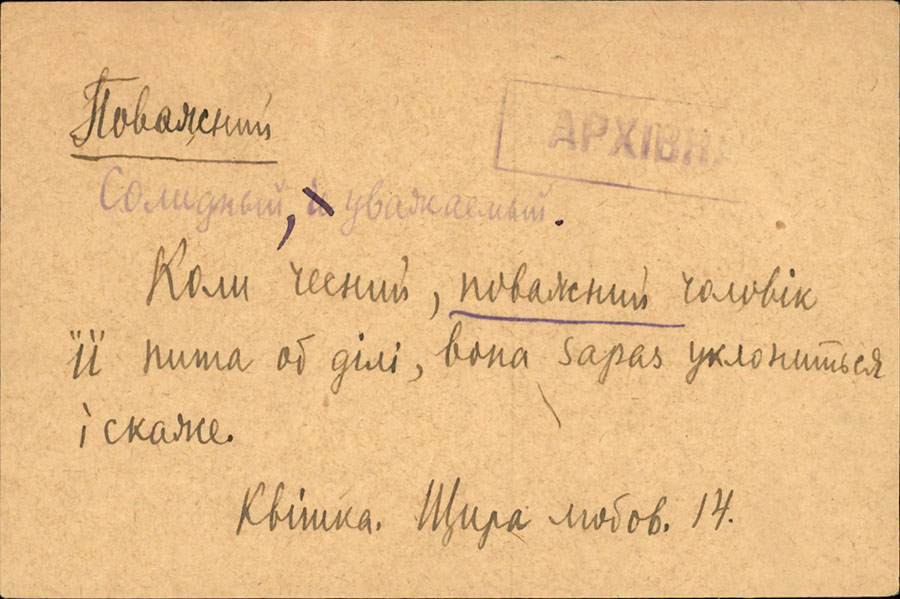 Поважний
АРХІВНА
Солидный, уважаемый.
Коли чесний, поважний чоловік
її пита об ділі, вона зараз уклониться
і скаже.
Квітка. Щира любов. 14.